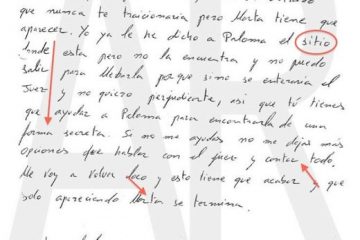 que nunca te traicionaria pero Marta tiene que
aparecer. Yo ya le he dicho a Paloma el sitio
donde esta pero no la encuentra y no puedo
salir para llebarla porque sino se enteraria el
Juez y no quiero perjudicarte, asi que tú tienes
que ayudar a Paloma para encontrarla de una
forma secreta. Si no me ayudas no me dejas más
opciones que hablar con el juez y contar todo.
Me voy a volver loco y esto tiene que acabar y
solo apareciendo Marta se termina.